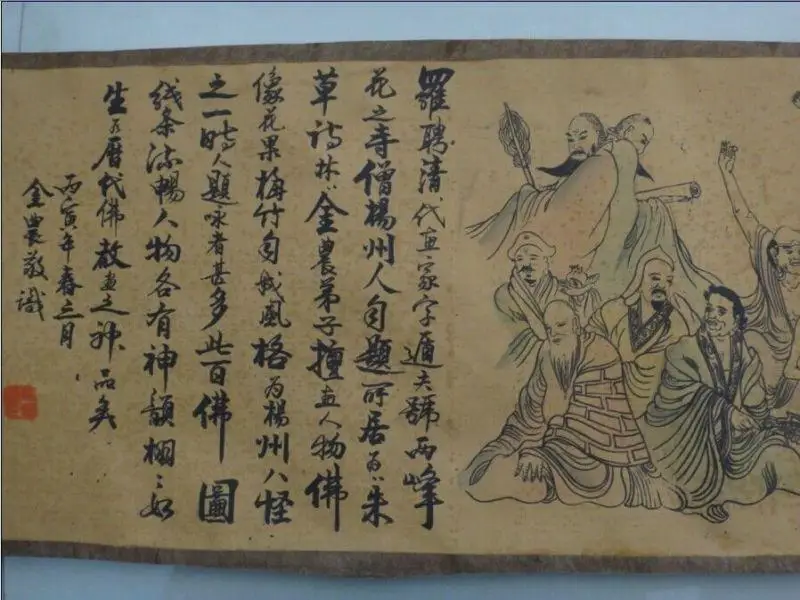 羅聘清代画家字遁夫號两峰
花之寺僧楊州人自题所居为朱
草诗林金農弟子擅画人物佛
像花果梅竹自成風格为楊州八怪
之一時人题咏者甚多此百佛圖
线条流暢人物各有神韻栩〻如
生乃曆代佛教画之神品矣
丙寅年春三月
金農敬識